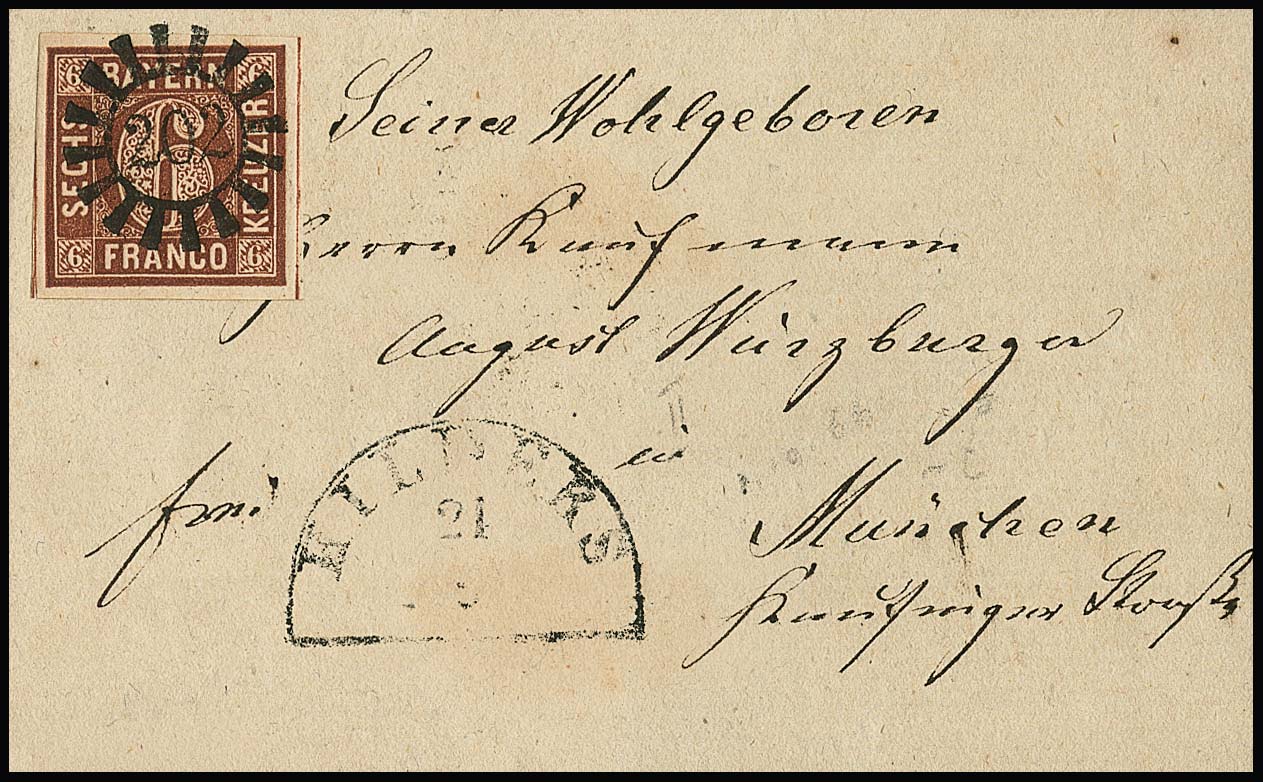 BAYERN
SECHS
KREUZER
FRANCO
6
6
6
6
6
Seiner Wohlgeboren
Herrn Kaufmann
August Würzburger
in
München
Kaufinger Straße
frei
HILDERS
21
II